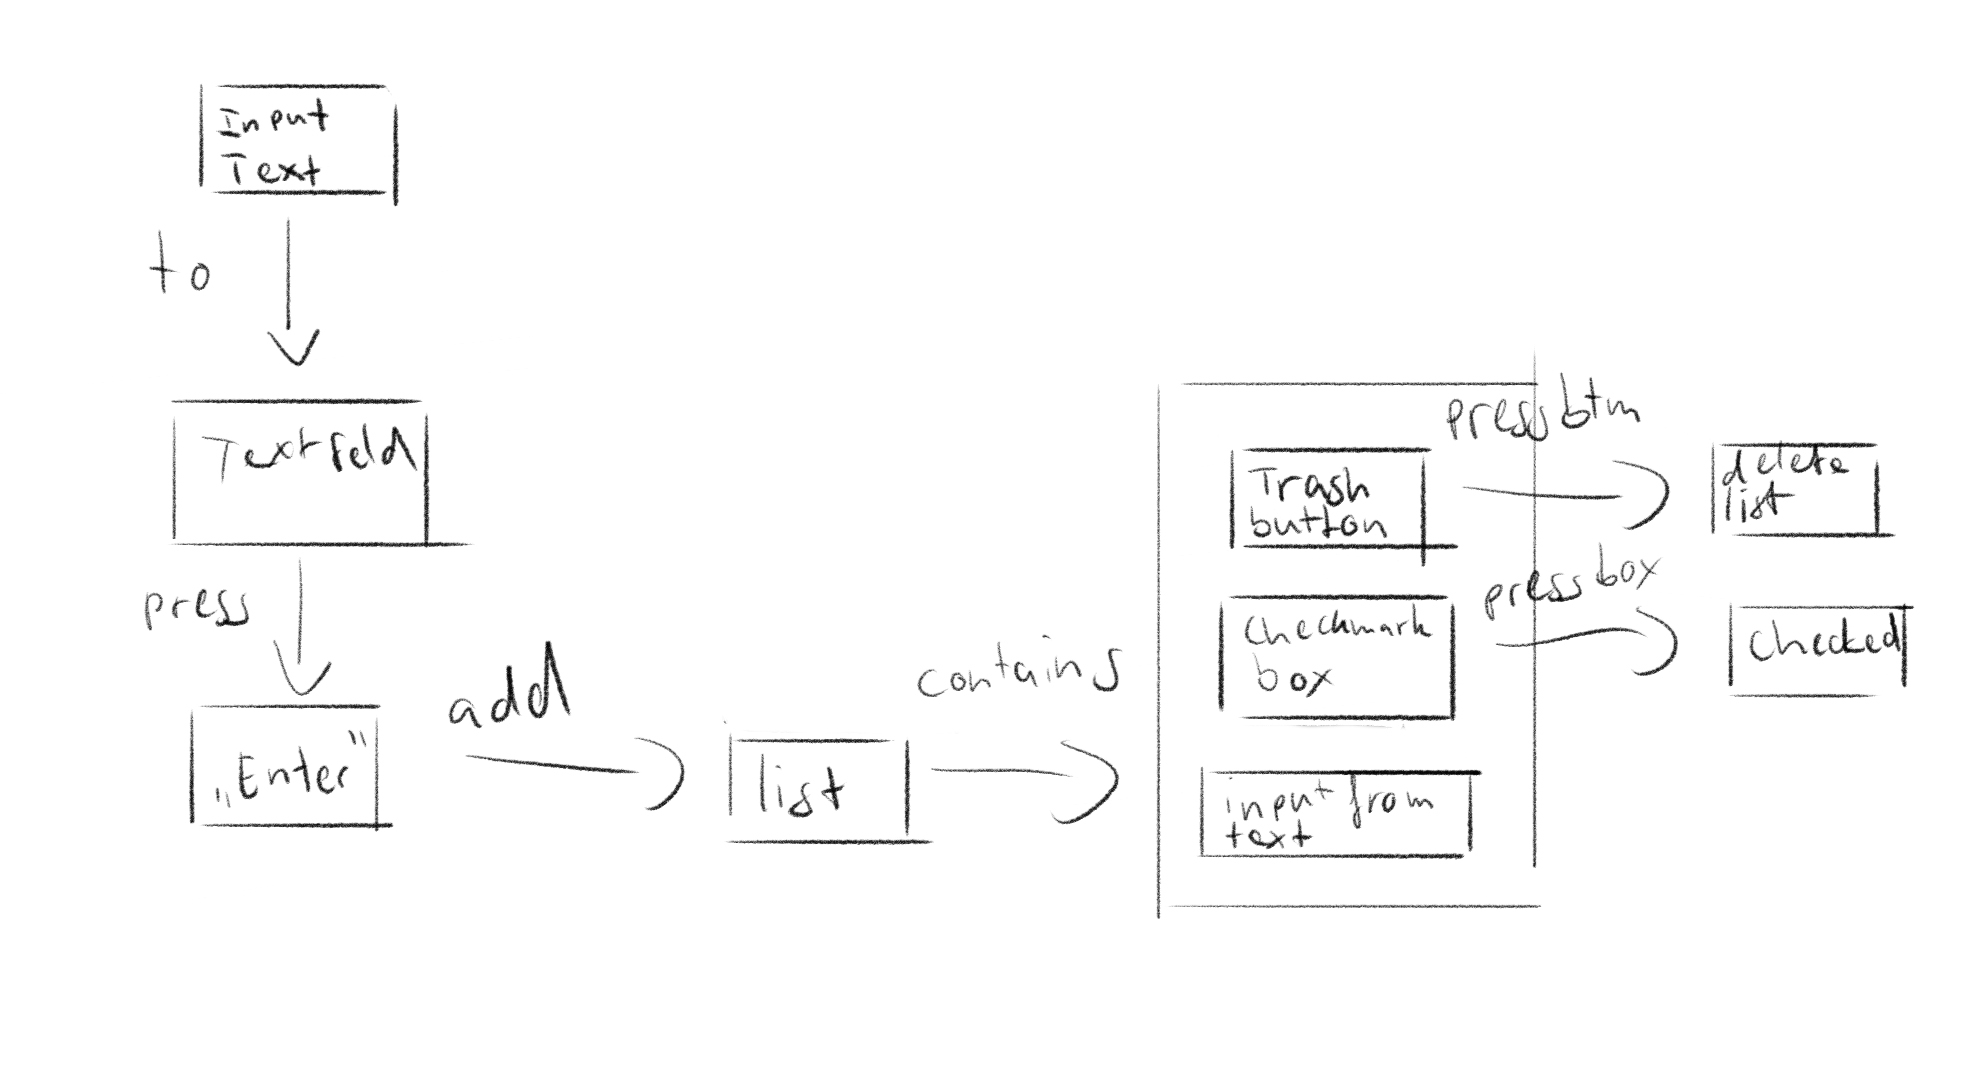 Input
Text
to
Textfeld
press
„Enter"
add
list
contains
Trash
button
press btm
delete
list
Checkmark
box
press box
Checked
input from
text